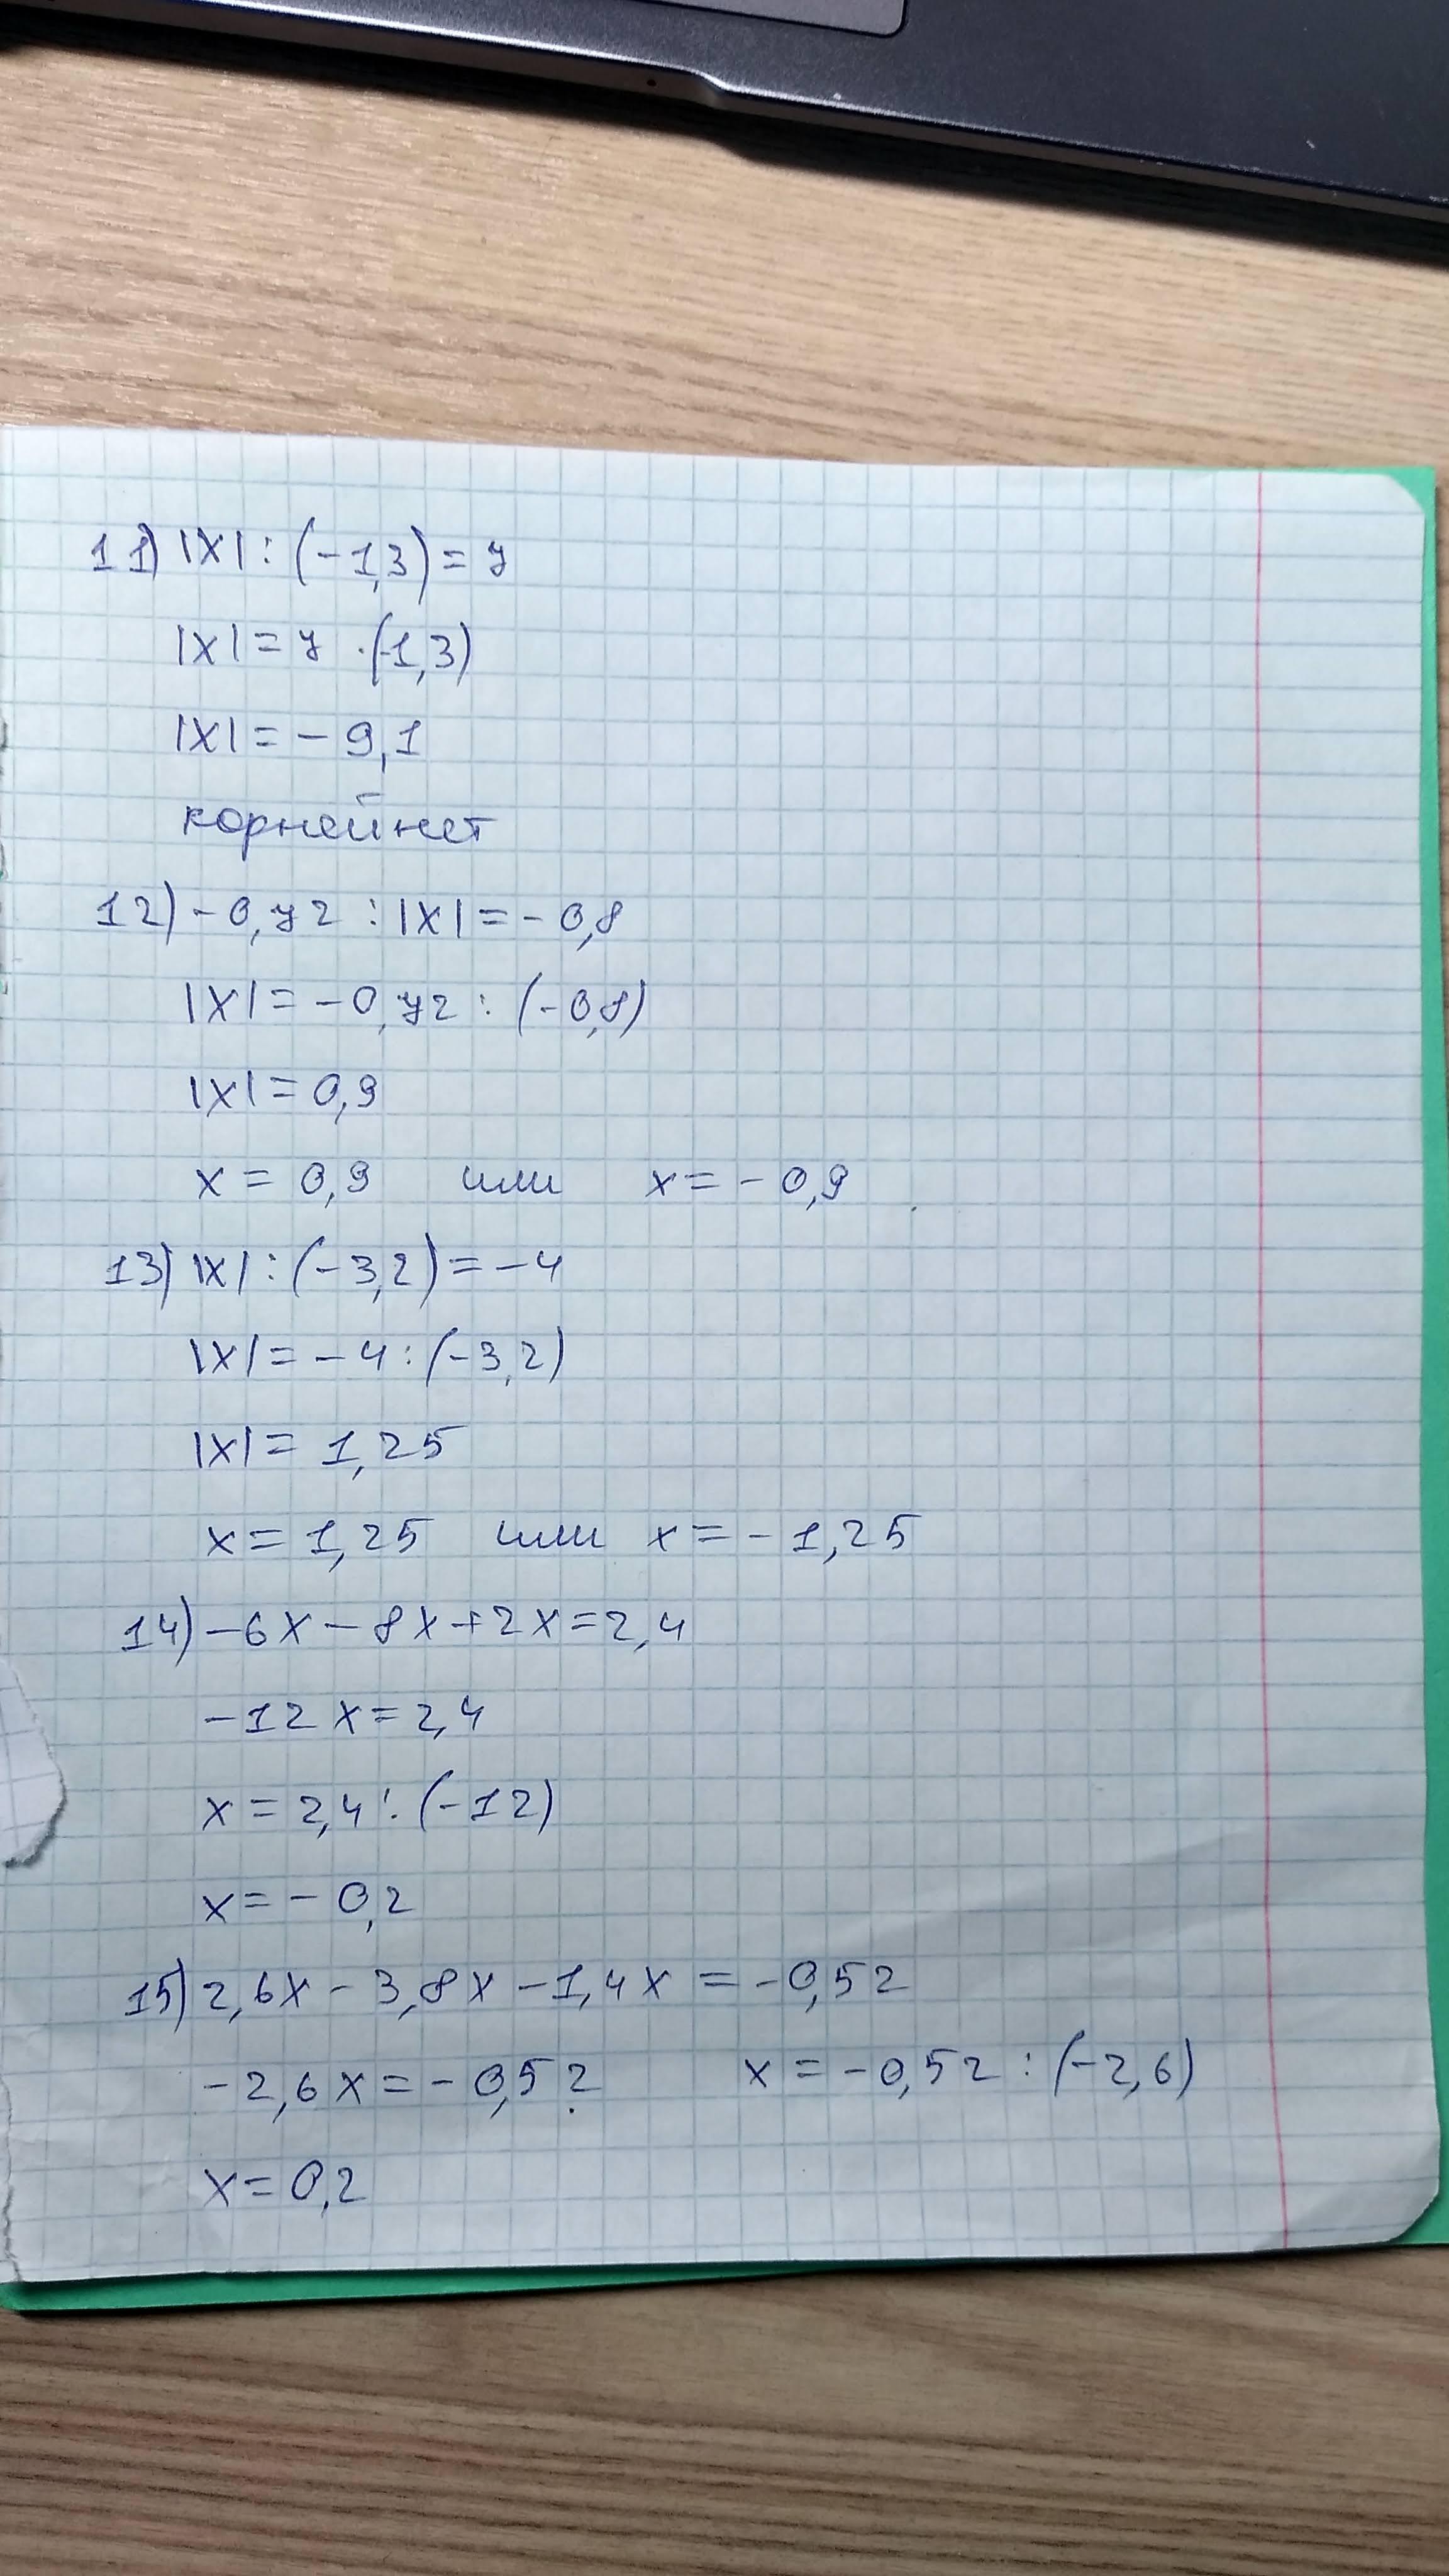 11) |x| : (-1,3) = 7
|x| = 7 · (-1,3)
|x| = - 9,1
корней нет
12) - 0,72 : |x| = - 0,8
|x| = -0,72 : (-0,8)
|x| = 0,9
x = 0,9 или x = - 0,9
13) |x| : (-3,2) = -4
|x| = -4 : (-3,2)
|x| = 1,25
x = 1,25 или x = - 1,25
14) -6x - 8x + 2x = 2,4
-12x = 2,4
x = 2,4 : (-12)
x = - 0,2
15) 2,6x - 3,8x - 1,4x = -0,52
-2,6x = -0,52 x = -0,52 : (-2,6)
x = 0,2